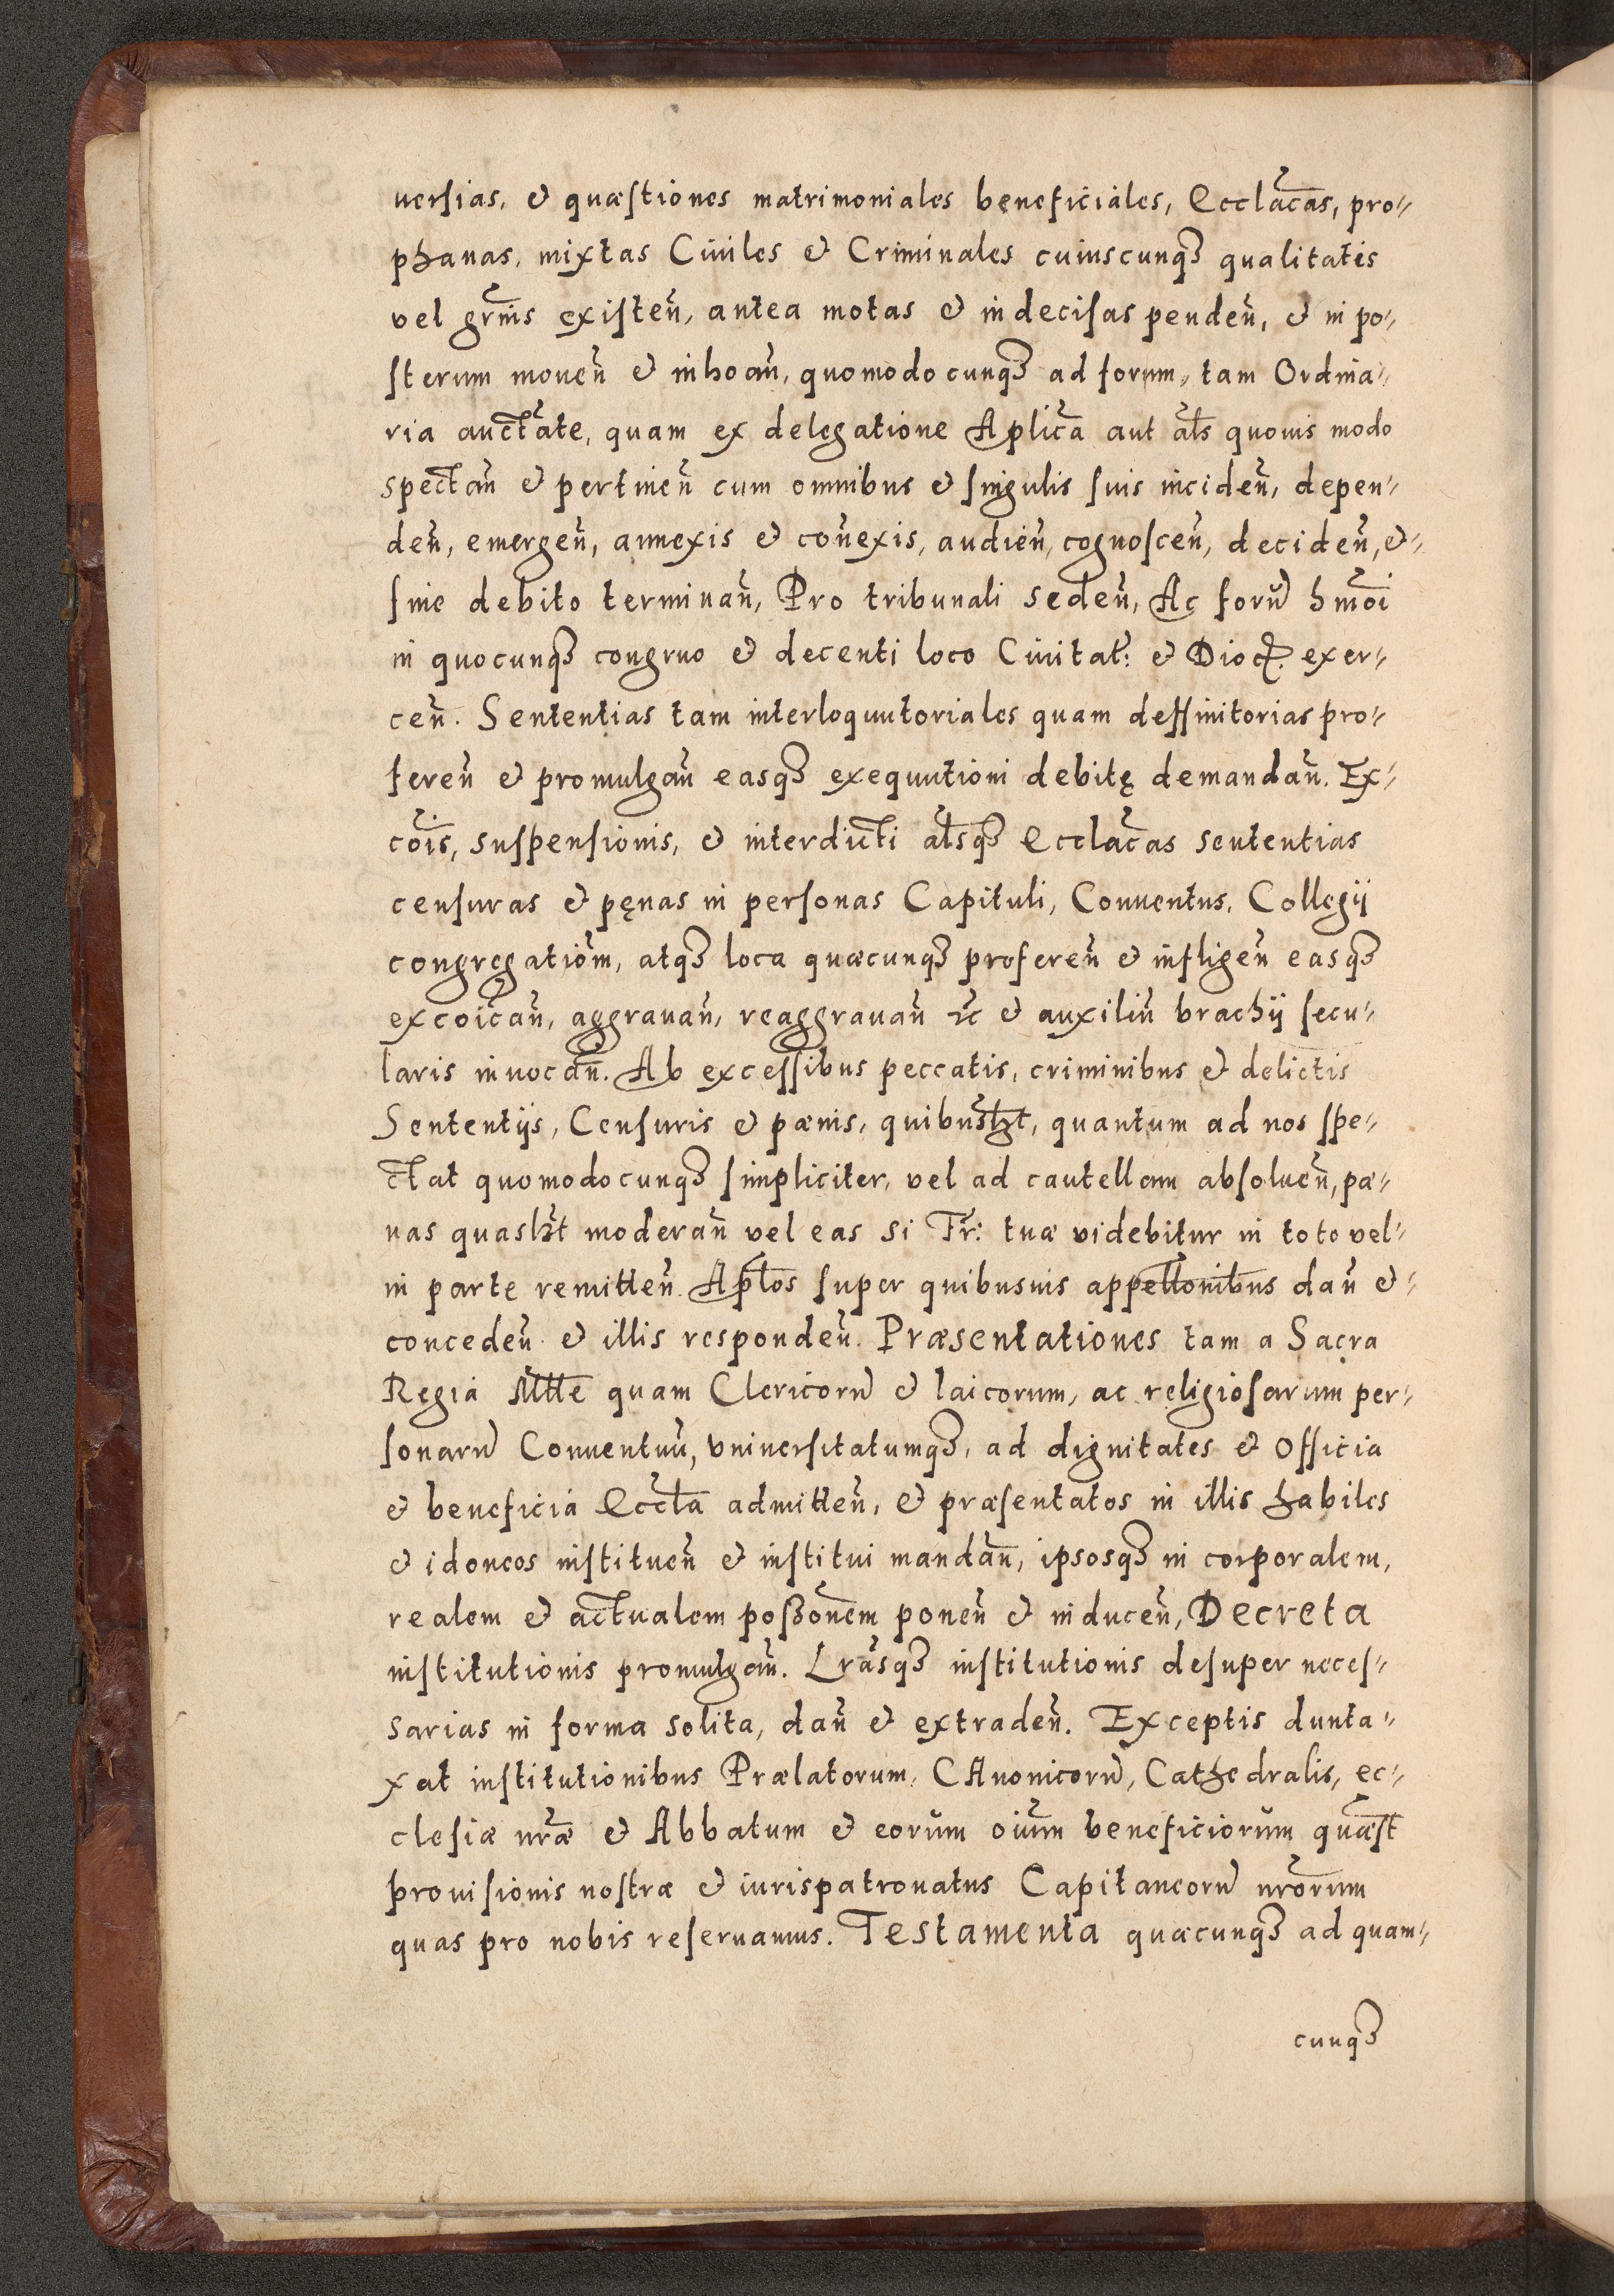 uersias, & quæstiones matrimoniales beneficiales, Ecclãcas, pro⸗
phanas, mixtas Ciuiles & Criminales cuiuscunqꝫ qualitatis
vel grñis existeñ, antea motas & indecisas pendeñ, & in po⸗
sterum moueñ & inhoañ, quomodocunqꝫ ad forum, tam Ordina⸗
ria auctãte, quam ex delegatione Aplica aut als quouis modo
spectañ & pertineñ cum omnibus & singulis suis incideñ, depen⸗
deñ, emergeñ, annexis & coñexis, audieñ, cognosceñ, decideñ, &⸗
fine debito terminañ, Pro tribunali sedeñ, Ac forũ hmõi
in quocunqꝫ congruo & decenti loco Ciuitat: & Dioc. exer⸗
ceñ. Sententias tam interloquutoriales quam deffinitorias pro⸗
fereñ & promulgañ easqꝫ exequutioni debitę demandañ. Ex⸗
cõis, suspensionis, & interdicti alsqꝫ Ecclãcas sententias
censuras & pęnas in personas Capituli, Conuentus, Collegij
congregatiõm, atqꝫ loca quæcunqꝫ profereñ & infligeñ easqꝫ
excõicañ, aggrauañ, reaggrauañ ꝛc & auxiliũ brachij secu⸗
laris inuocañ. Ab excessibus peccatis, criminibus & delictis
Sententijs, Censuris & pænis, quibuslꝫt, quantum ad nos spe⸗
ctat quomodocunqꝫ simpliciter, vel ad cautellam absolueñ, pæ⸗
nas quaslꝫt moderañ vel eas si Fr: tuæ videbitur in toto vel⸗
in parte remitteñ. Aplos super quibusuis appellonibus dañ &⸗
concedeñ & illis respondeñ. Præsentationes tam a Sacra
Regia Mtte quam Clericorũ & laicorum, ac religiosarum per⸗
sonarũ Conuentuũ, vniuersitatumqꝫ, ad dignitates & Officia
& beneficia Eccla admitteñ, & præsentatos in illis habiles
& idoneos institueñ & institui mandañ, ipsosqꝫ in corporalem,
realem & actualem poßõnem poneñ & induceñ, Decreta
institutionis promulgañ. Lrãsqꝫ institutionis desuper neces⸗
sarias in forma solita, dañ & extradeñ. Exceptis dunta⸗
xat institutionibus Prælatorum, CAnonicorũ, Cathedralis, ec⸗
clesiæ nræ & Abbatum & eorum oĩum beneficiorum quæst
prouisionis nostræ & iurispatronatus Capitaneorũ nrõrum
quas pro nobis reseruamus. Testamenta quæcunqꝫ ad quam⸗
cunqꝫ